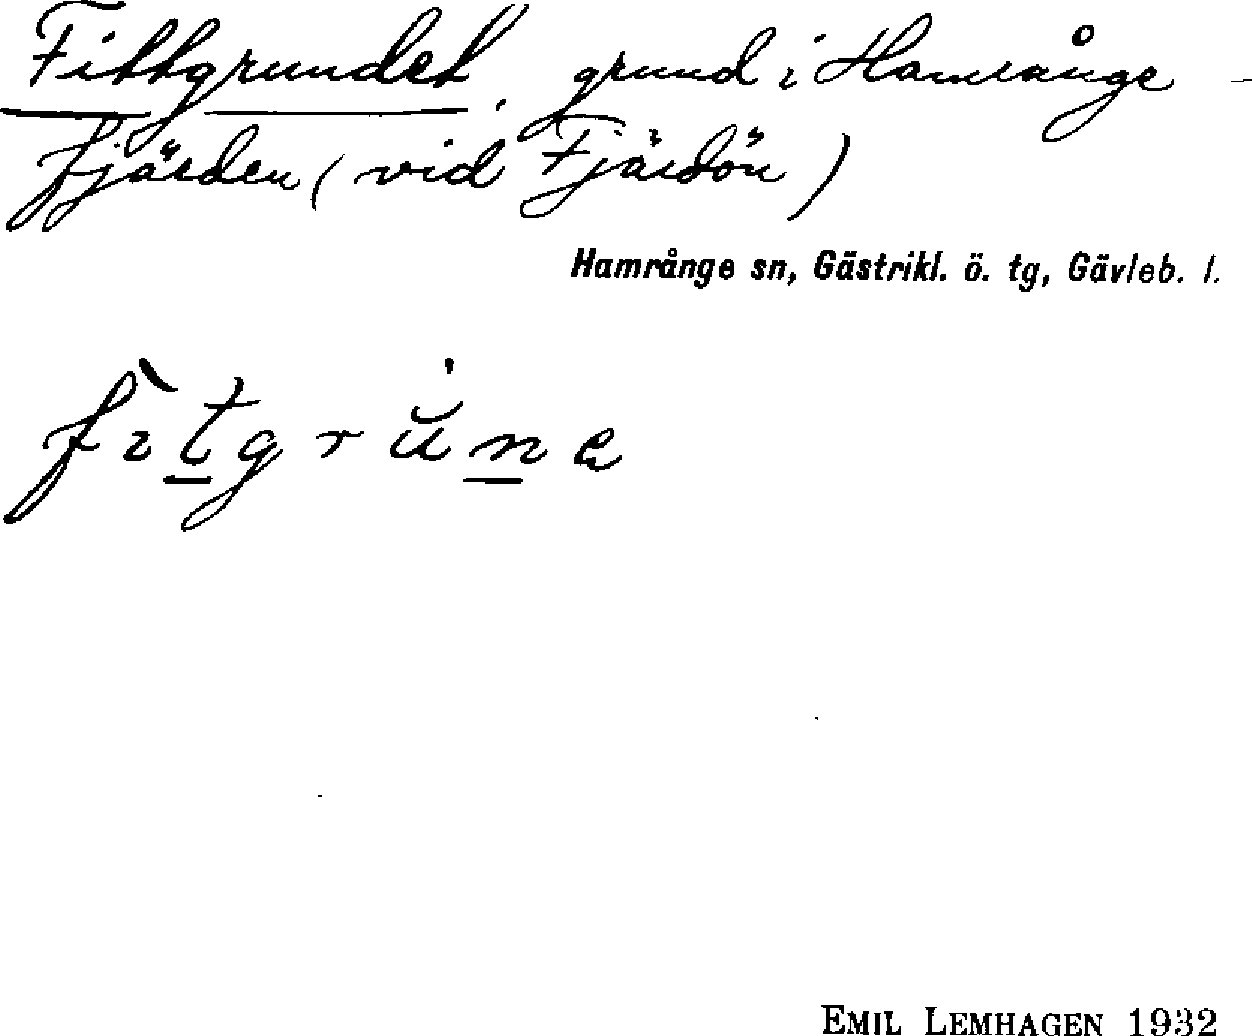 Fittgrundet, grund i Hamrånge-
fjärden (vid Fjärdön)
Hamrånge sn, Gästrikl. ö. tg, Gävleb. l.
fìtgrŭ̇ne
EMIL LEMHAGEN 1932